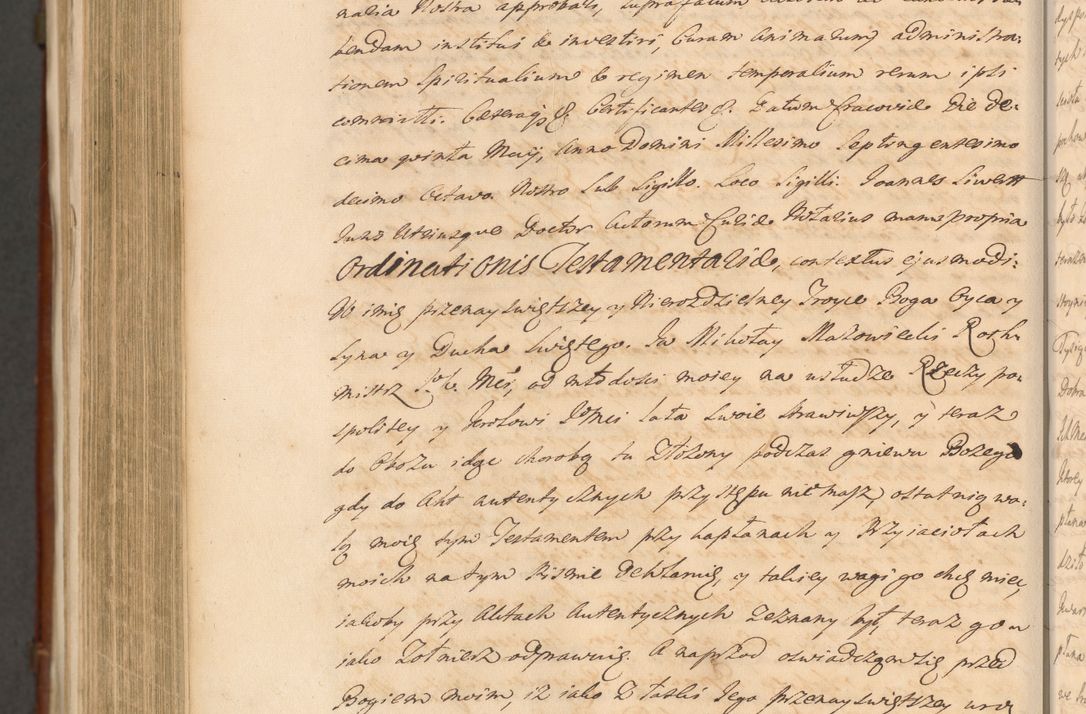 bendam institui & investiri, Curam animarum, administra:
tionem Spiritualium & regimen temporalium rerum ipsi
committi. Certificantes &. Datum Cracoviæ Die de:
cima quinta Maij, Anno Domini Millesimo Septingentesimo
decimo Octavo. Nostro Sub Sigillo. Loco Sigilli. Joannes Siwert
Juris Utriusque Doctor Actorum Curiæ Notarius manu propria
Ordinationis Testamentariæ, contextus ejusmodi:
W imię przenayświętszey y Nierozdzielney Troyce Boga Oyca y
Syna y Ducha Swiętego. Ja Mikołay Makowiecki Rothm
mistrz od młodości moiey na usłudze Rzeczy po:
spolitey y Krolowi Jmci lata swoie strawiwszy, y teraz
do Obozu idąc chorobą tu złożony podczas gniewu Bożego
gdy do Akt autentycznych przystępu nie masz, ostatnią wo:
lą moię tym Testamentem przy kapłanach y Przyiaciołach
moich na tym Pismie deklaruię, y takiey wagi go chcę mieć,
iakoby przy Aktach Autentycznych zeznany był, teraz go
iako Zołnierz odprawuię. A naprzod oswiadczam się przed
Bogiem moim, iż iako z łaski Jego przenayświętszey